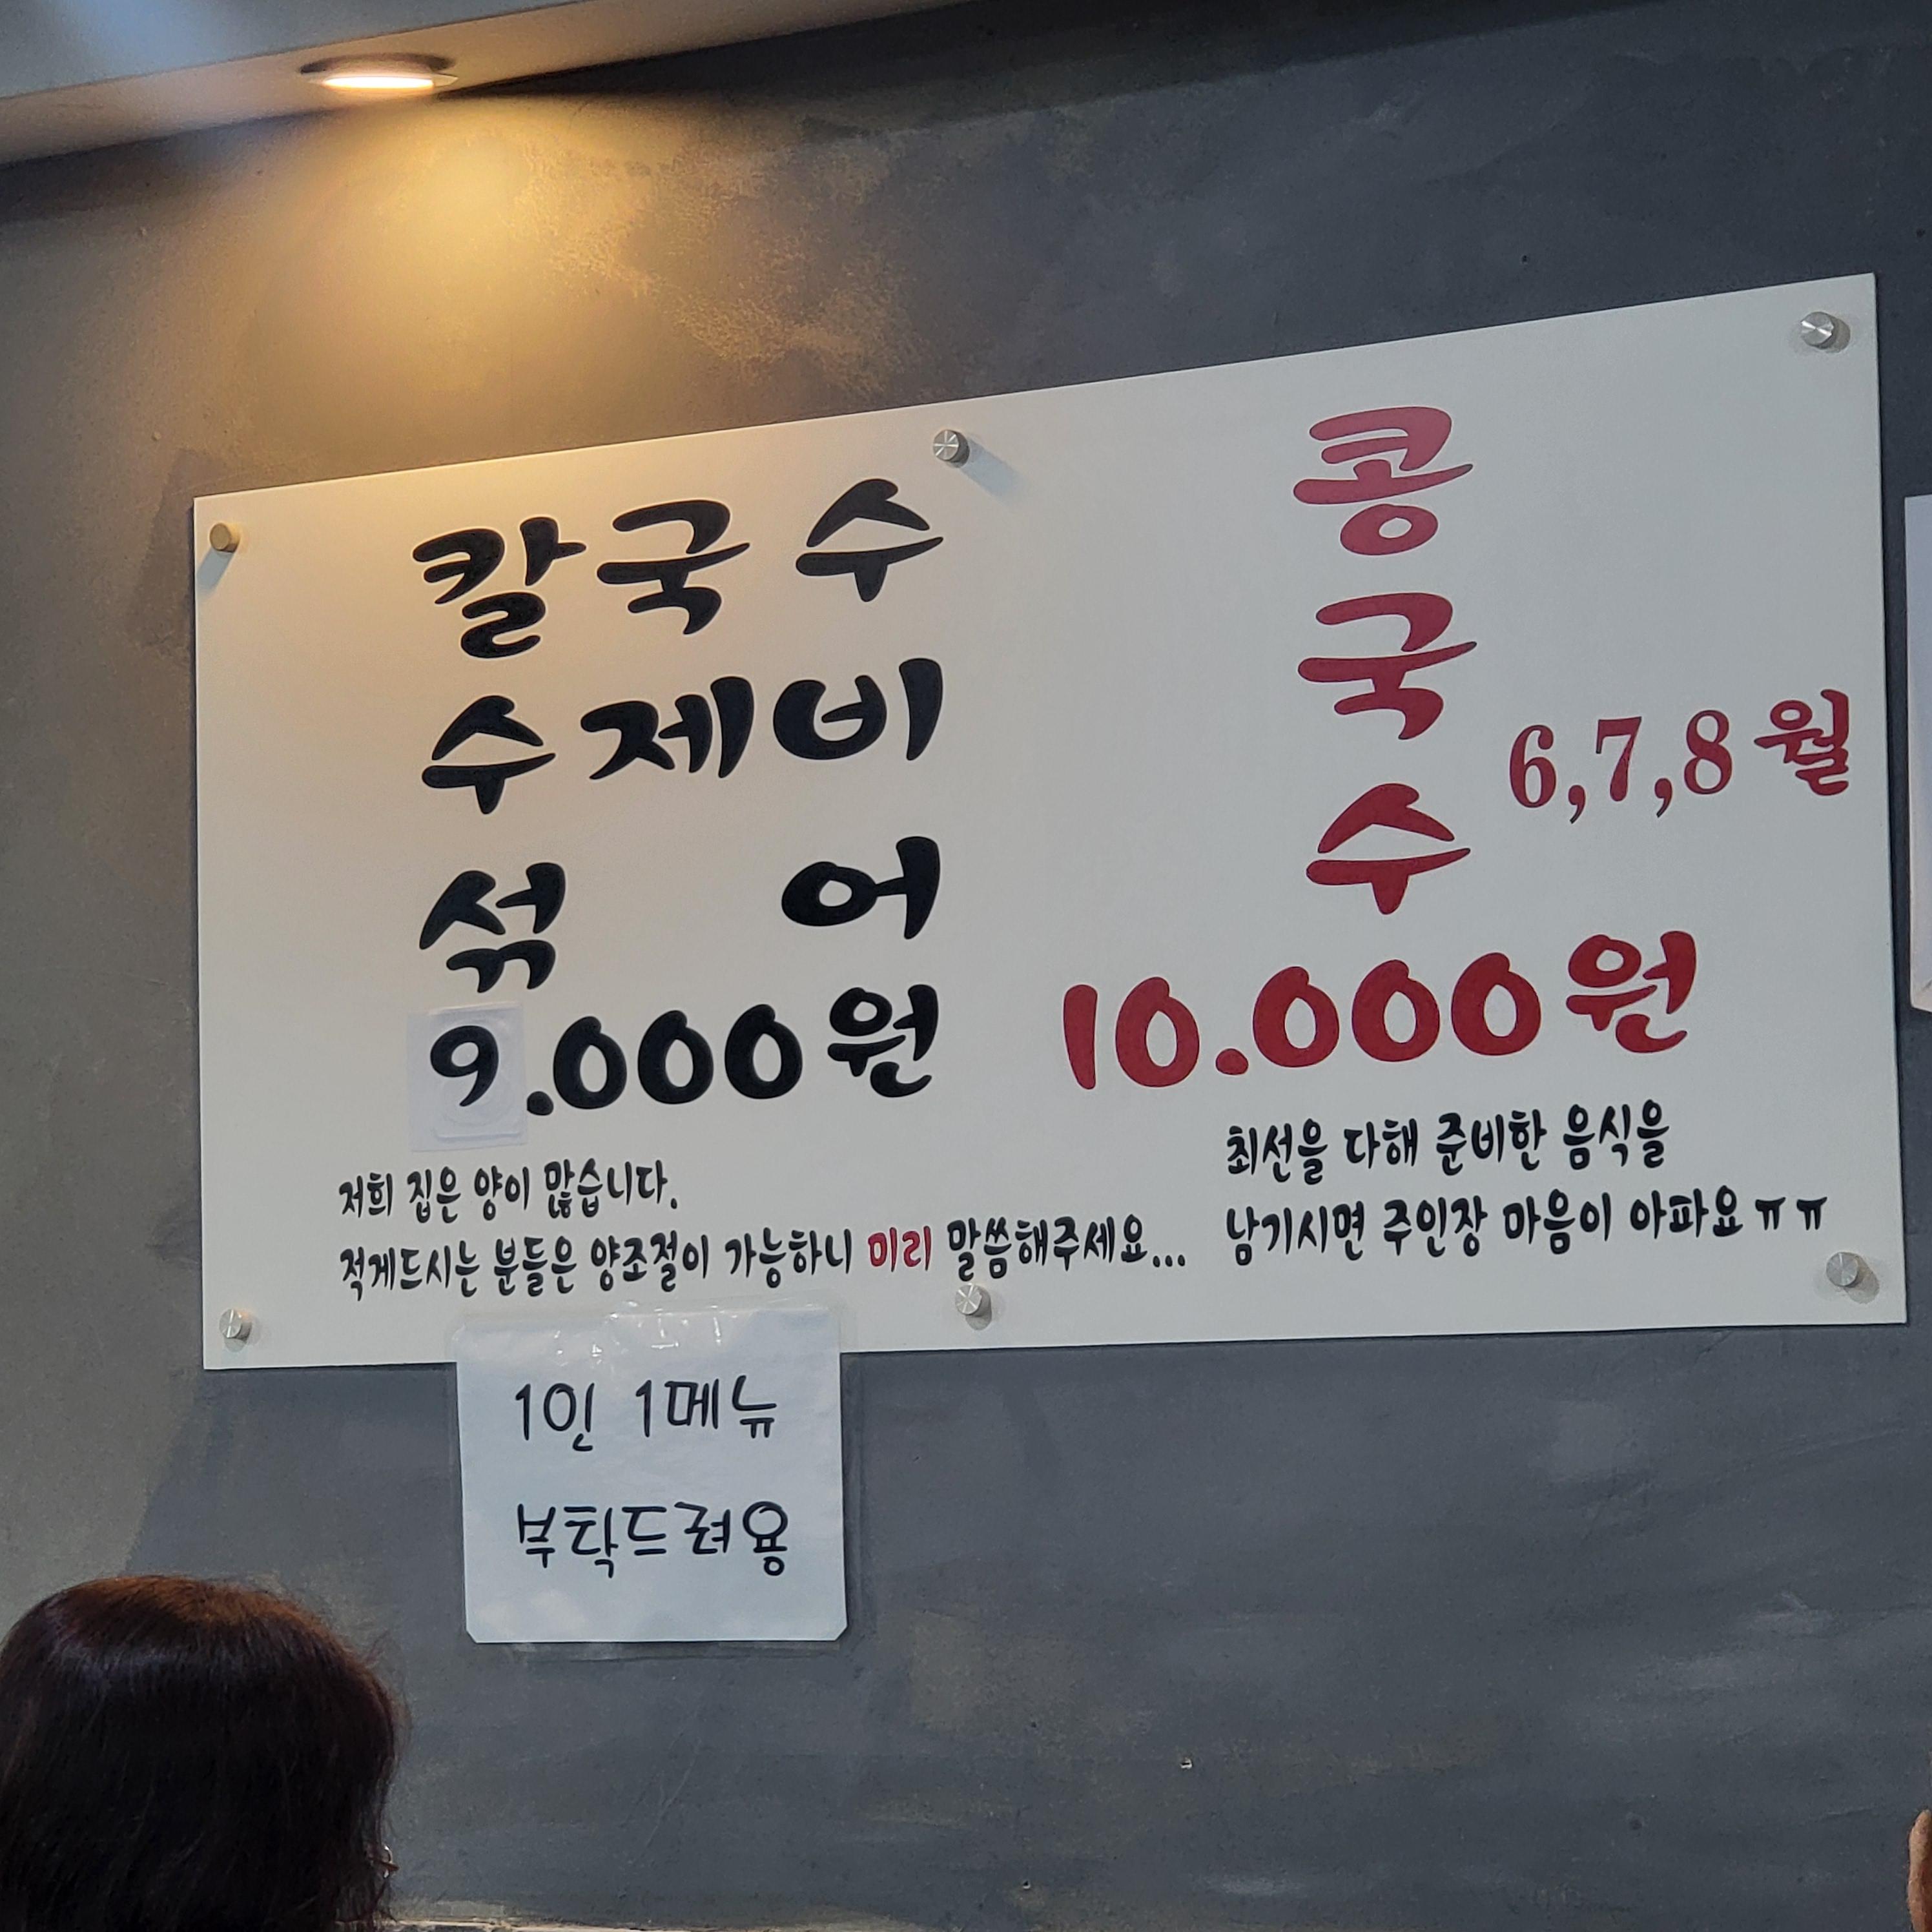 칼국수
수제비
섞 어
9.000원
저희 집은 양이 많습니다.
적게드시는 분들은 양조절이 가능하니 미리 말씀해주세요...
콩
국
수
6,7,8월
10.000원
최선을 다해 준비한 음식을
남기시면 주인장 마음이 아파요 ㅠㅠ
1인 1메뉴
부탁드려용